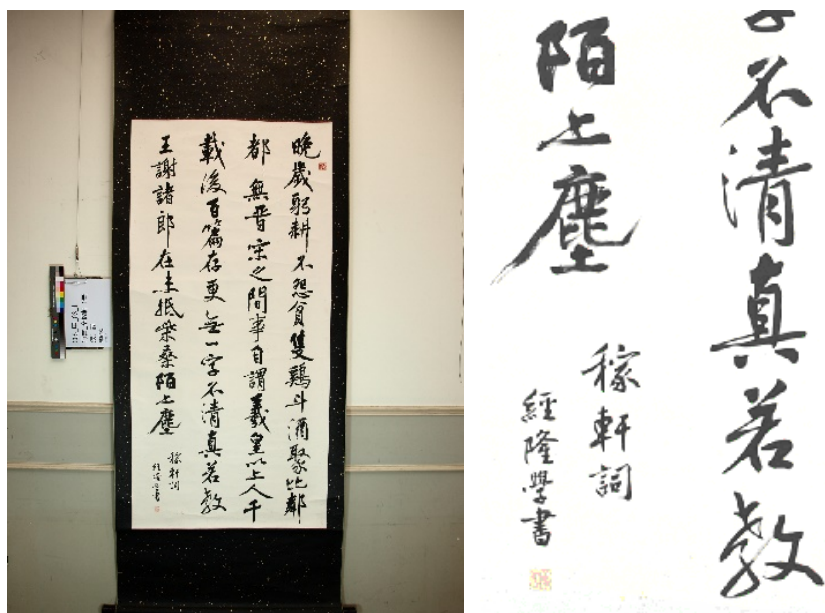 晚歲躬耕不怨貧隻鷄斗酒聚比鄰
都無晉宋之間事自謂羲皇以上人千
載後百篇存更無一字不清真若教
王謝諸郎在未抵柴桑陌上塵
稼軒詞
經隆學書
不清真若教
陌上塵
稼軒詞
經隆學書